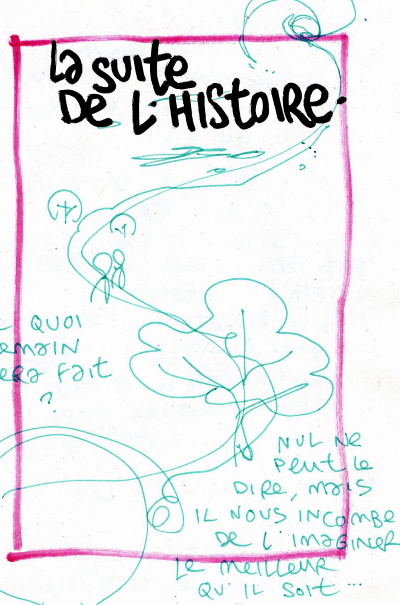 La suite
De L'Histoire.
QUOI
emain
era fait
?
NUL NE
Peut Le
DIRE, mais
IL NOUS INCOMBE
DE L'imaginer
Le meilleur
QU'IL Soit...